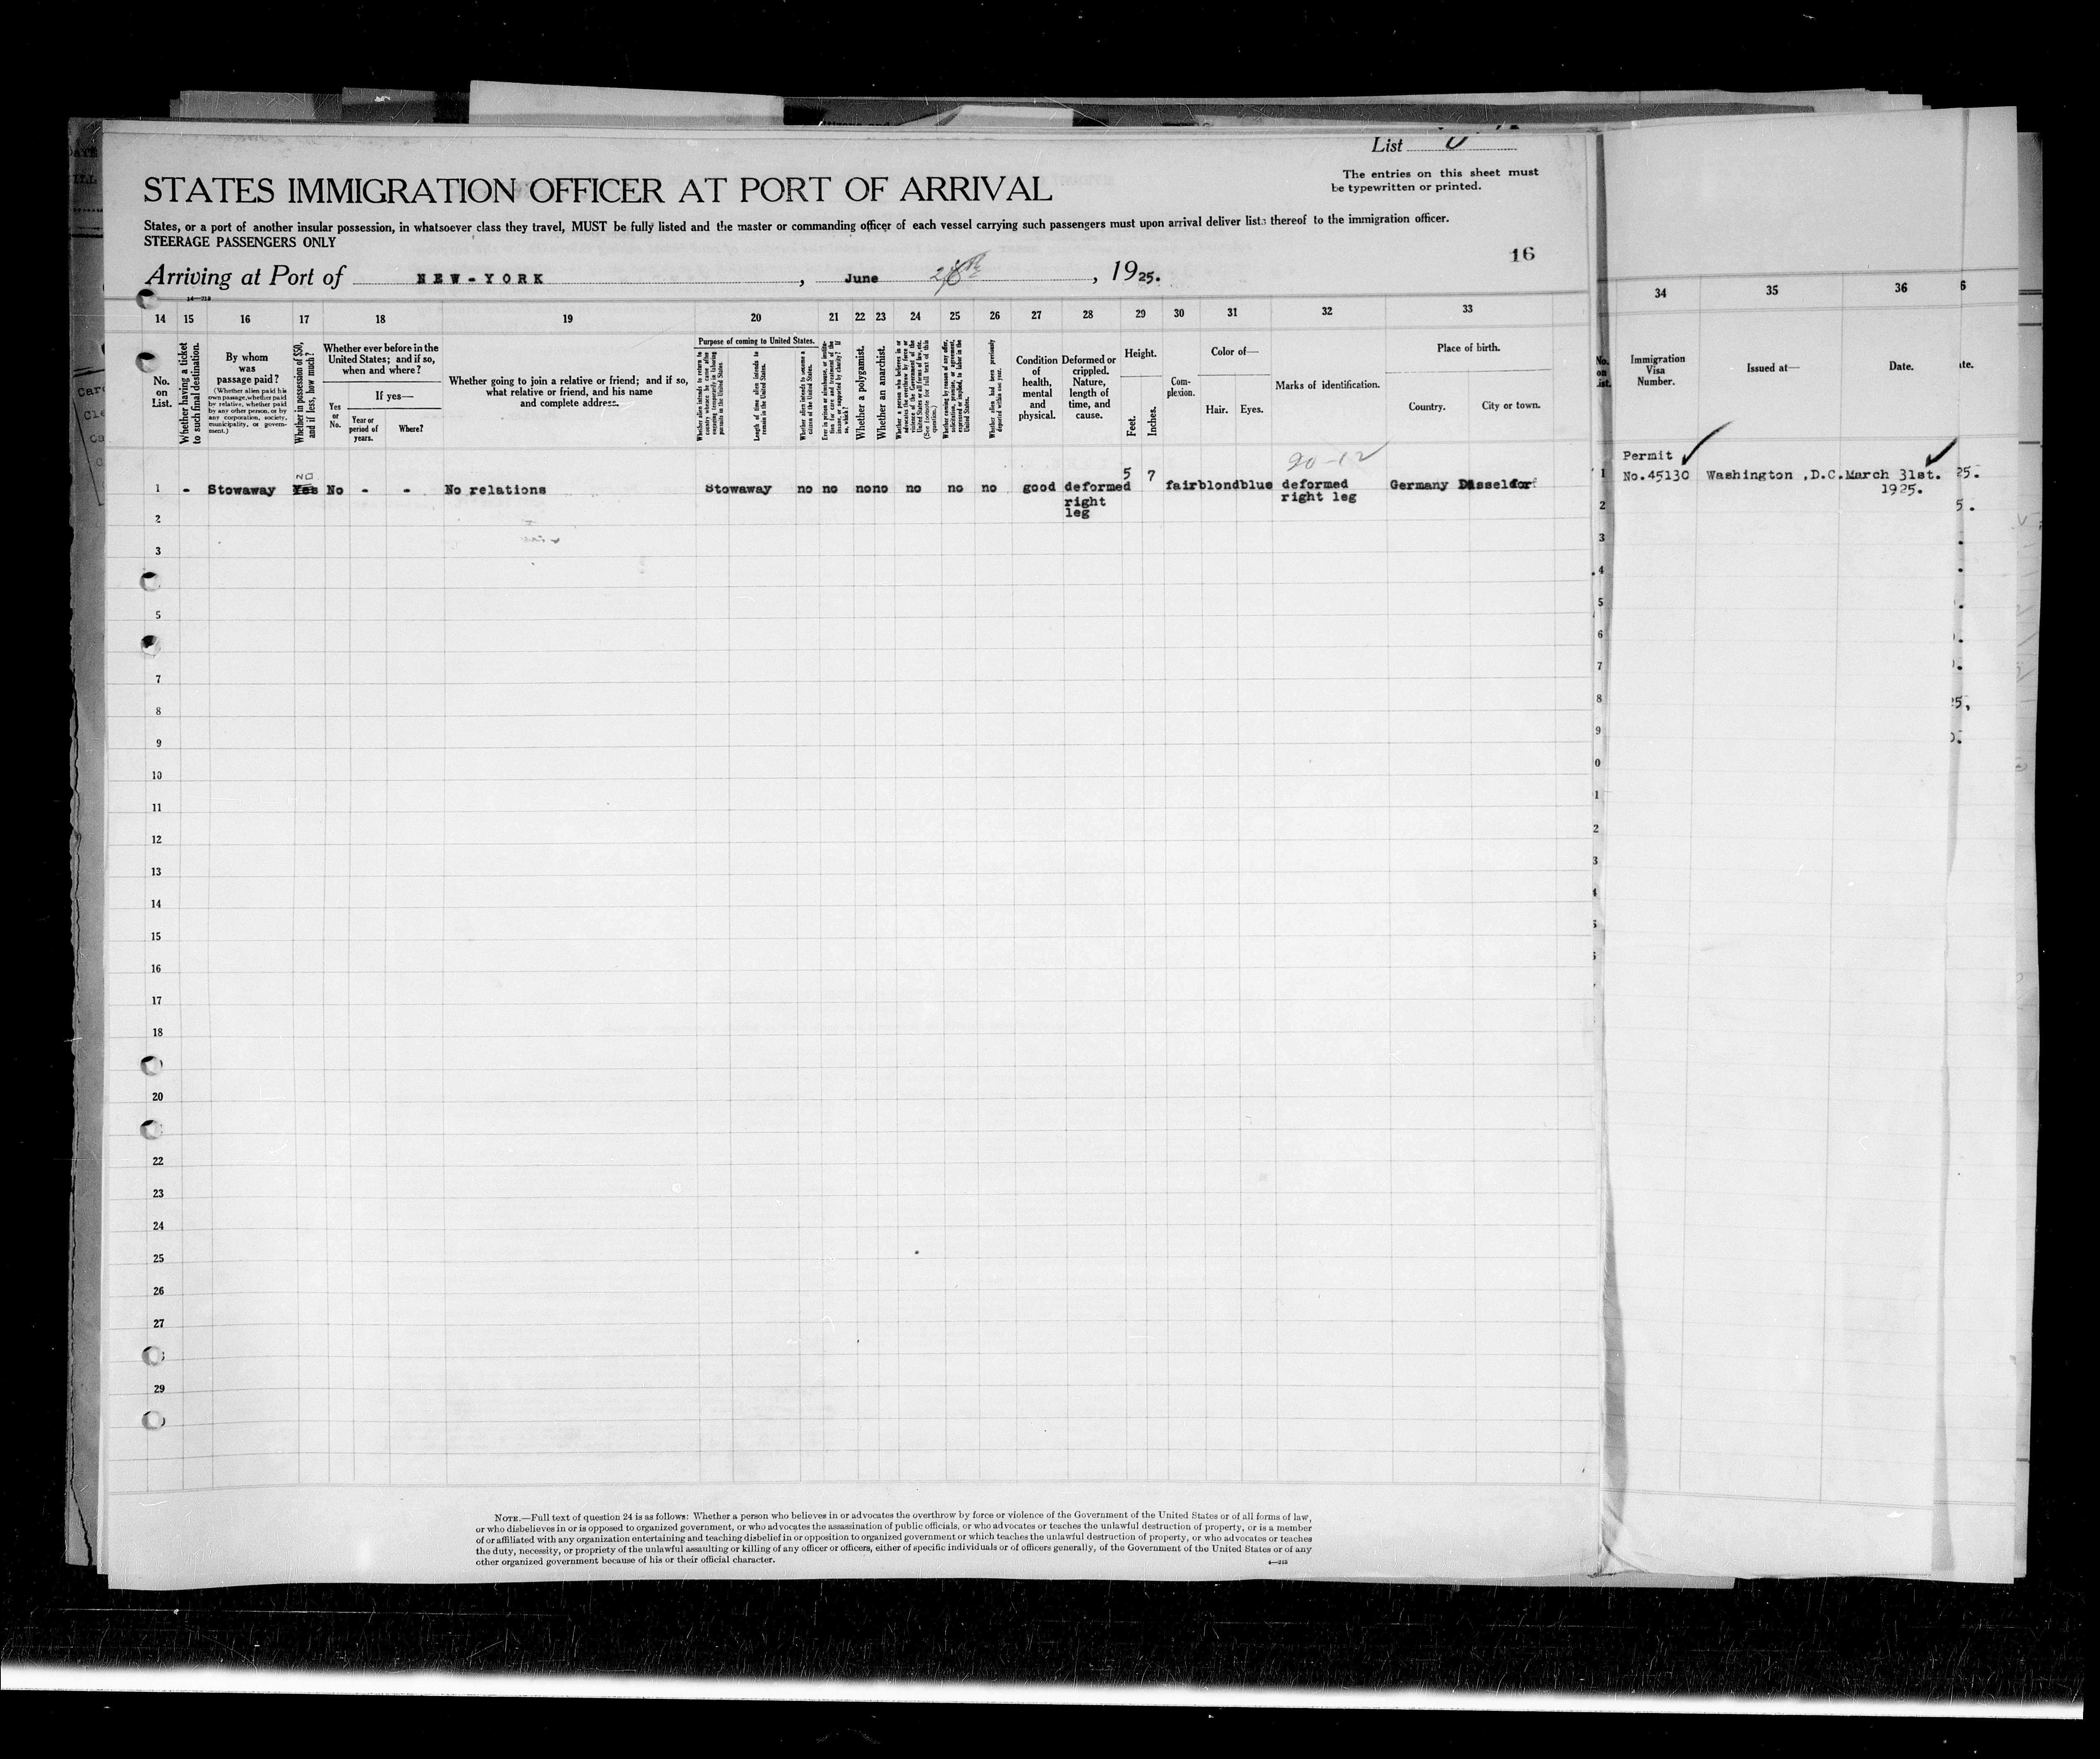 List
STATES IMMIGRATION OFFICER AT PORT OF ARRIVAL
The entries on this sheet must
be typewritten or printed.
States, or a port of another insular possession, in whatsoever class they travel, MUST be fully listed and the master or commanding officer of each vessel carrying such passengers must upon arrival deliver lists thereof to the immigration officer.
STEERAGE PASSENGERS ONLY
16
Arriving at Port of NEW-YORK, June , 1925.
14 15 16 17 18 19 20 21 22 23 24 25 26 27 28 29 30 31 32 33
34 35 36 6
No. on List.
Whether having a ticket to such final destination.
By whom was passage paid?
(Whether alien paid his own passage, whether paid by relative, whether paid by any other person, or by any corporation, society, municipality, or government.)
Whether in possession of $50, and if less, how much?
Whether ever before in the United States; and if so, when and where?
Yes or No.
If yes—
Year or period of years.
Where?
Whether going to join a relative or friend; and if so, what relative or friend, and his name and complete address.
Purpose of coming to United States.
Whether alien intends to return to country whence he came after engaging temporarily in laboring pursuits in the United States
Length of time alien intends to remain in the United States.
Whether alien intends to become a citizen of the United States.
Ever in prison or almshouse, or institution for care and treatment of the insane, or supported by charity? If so, which?
Whether a polygamist.
Whether an anarchist.
Whether a person who believes in or advocates the overthrow by force or violence of the Government of the United States or all forms of law, etc. (See footnote for full text of this question.)
Whether coming by reason of any offer, solicitation, promise, or agreement, expressed or implied, to labor in the United States.
Whether alien had been previously deported within one year.
Condition of health, mental and physical.
Deformed or crippled. Nature, length of time, and cause.
Height.
Feet. Inches.
Complexion.
Color of—
Hair. Eyes.
Marks of identification.
Place of birth.
Country. City or town.
No. on list.
Immigration Visa Number.
Issued at—
Date.
ate.
90-12
NO
1 - Stowaway Yes No - - No relations Stowaway no no no no no no no good deformed right leg 5 7 fair blond blue deformed right leg Germany Düsseldorf
1 Permit No.45130 Washington ,D.C. March 31st. 1925. 25.
2
3
5
6
7
8
9
10
11
12
13
14
15
16
17
18
20
22
23
24
25
26
27
29
NOTE.—Full text of question 24 is as follows: Whether a person who believes in or advocates the overthrow by force or violence of the Government of the United States or of all forms of law,
or who disbelieves in or is opposed to organized government, or who advocates the assassination of public officials, or who advocates or teaches the unlawful destruction of property, or is a member
of or affiliated with any organization entertaining and teaching disbelief in or opposition to organized government or which teaches the unlawful destruction of property, or who advocates or teaches
the duty, necessity, or propriety of the unlawful assaulting or killing of any officer or officers, either of specific individuals or of officers generally, of the Government of the United States or of any
other organized government because of his or their official character.